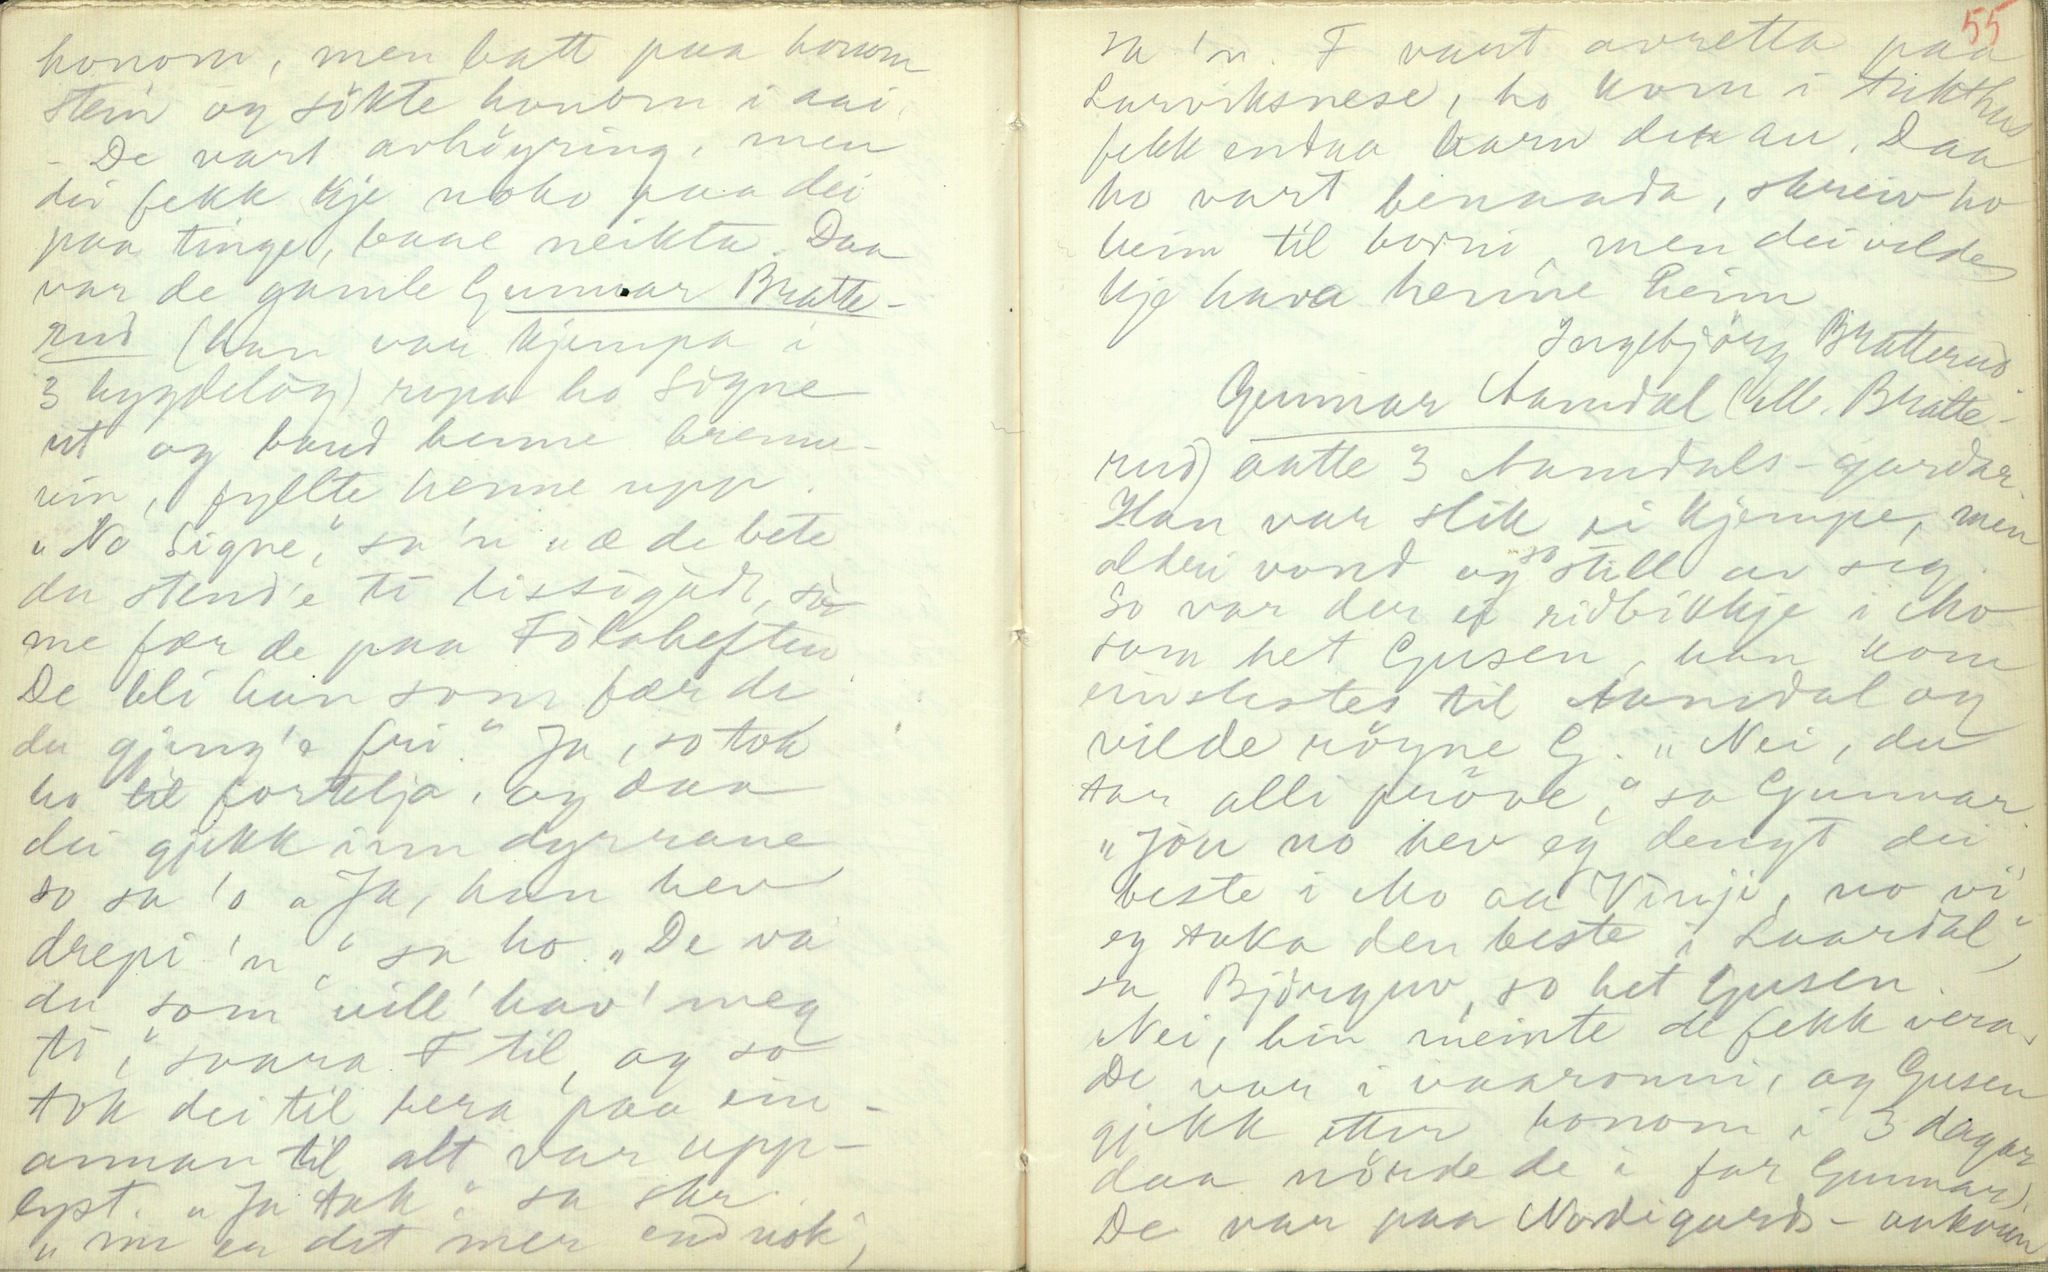 honom, men batt paa honom
stein og sökte honom i aai.
- De vart avhöyring, men
dei fekk kje noko paa dei
paa tinge, baae neikta. Daa
var de gamle Gunnar Bratte-
rud (han var kjempa i
3 bygdelög) ropa ho Signe
ut og baud henne brenne-
vin, fyllte henne upp.
"No Signe," sa'n "æ de bete
du stend'e ti
me fær de paa Folaheften
De bli han som fær de
du gjeng'e fri" Ja, so tok
ho til fortelja, og daa
dei gjekk inn dyrrane
so sa 'o "Ja, han hev
drepi 'n," sa ho. "De va
du som vill' hav' meg
ti," svara F til, og so
tok dei til bera paa ein-
annan til alt var upp-
lyst. "Ja tak," sa skr.
"nu er det mer end nok",
55
sa 'n. F vart avretta paa
Larviksnese, ho kom i tukthus
fekk endaa barn der au. Daa
ho vart benaada, skreiv ho
heim til borni, men dei vilde
kje hava henne heim
Ingebjörg Bratterud
Gunnar Aamdal (ell. Bratte-
rud) aatte 3 Aamdals-gardar.
Han var slik ei kjempe, men
alderi vond og so still av seg.
So var der ei ridbikkje i Mo
som het Gusen, han kom
einslestes til Aamdal og
vilde röyne G. "Nei, du
tar alli pröve," sa Gunnar.
"Jou no hev eg dengt dei
beste i Mo aa Vinje, no vi
eg taka den beste i Laardal",
sa Björguv, so het Gusen.
Nei, hin meinte de fekk vera.
De var i vaaronni, og Gusen
gjekk etter honom i 3 dagar
daa nörde de i for Gunnar.
De var paa Nordigards-